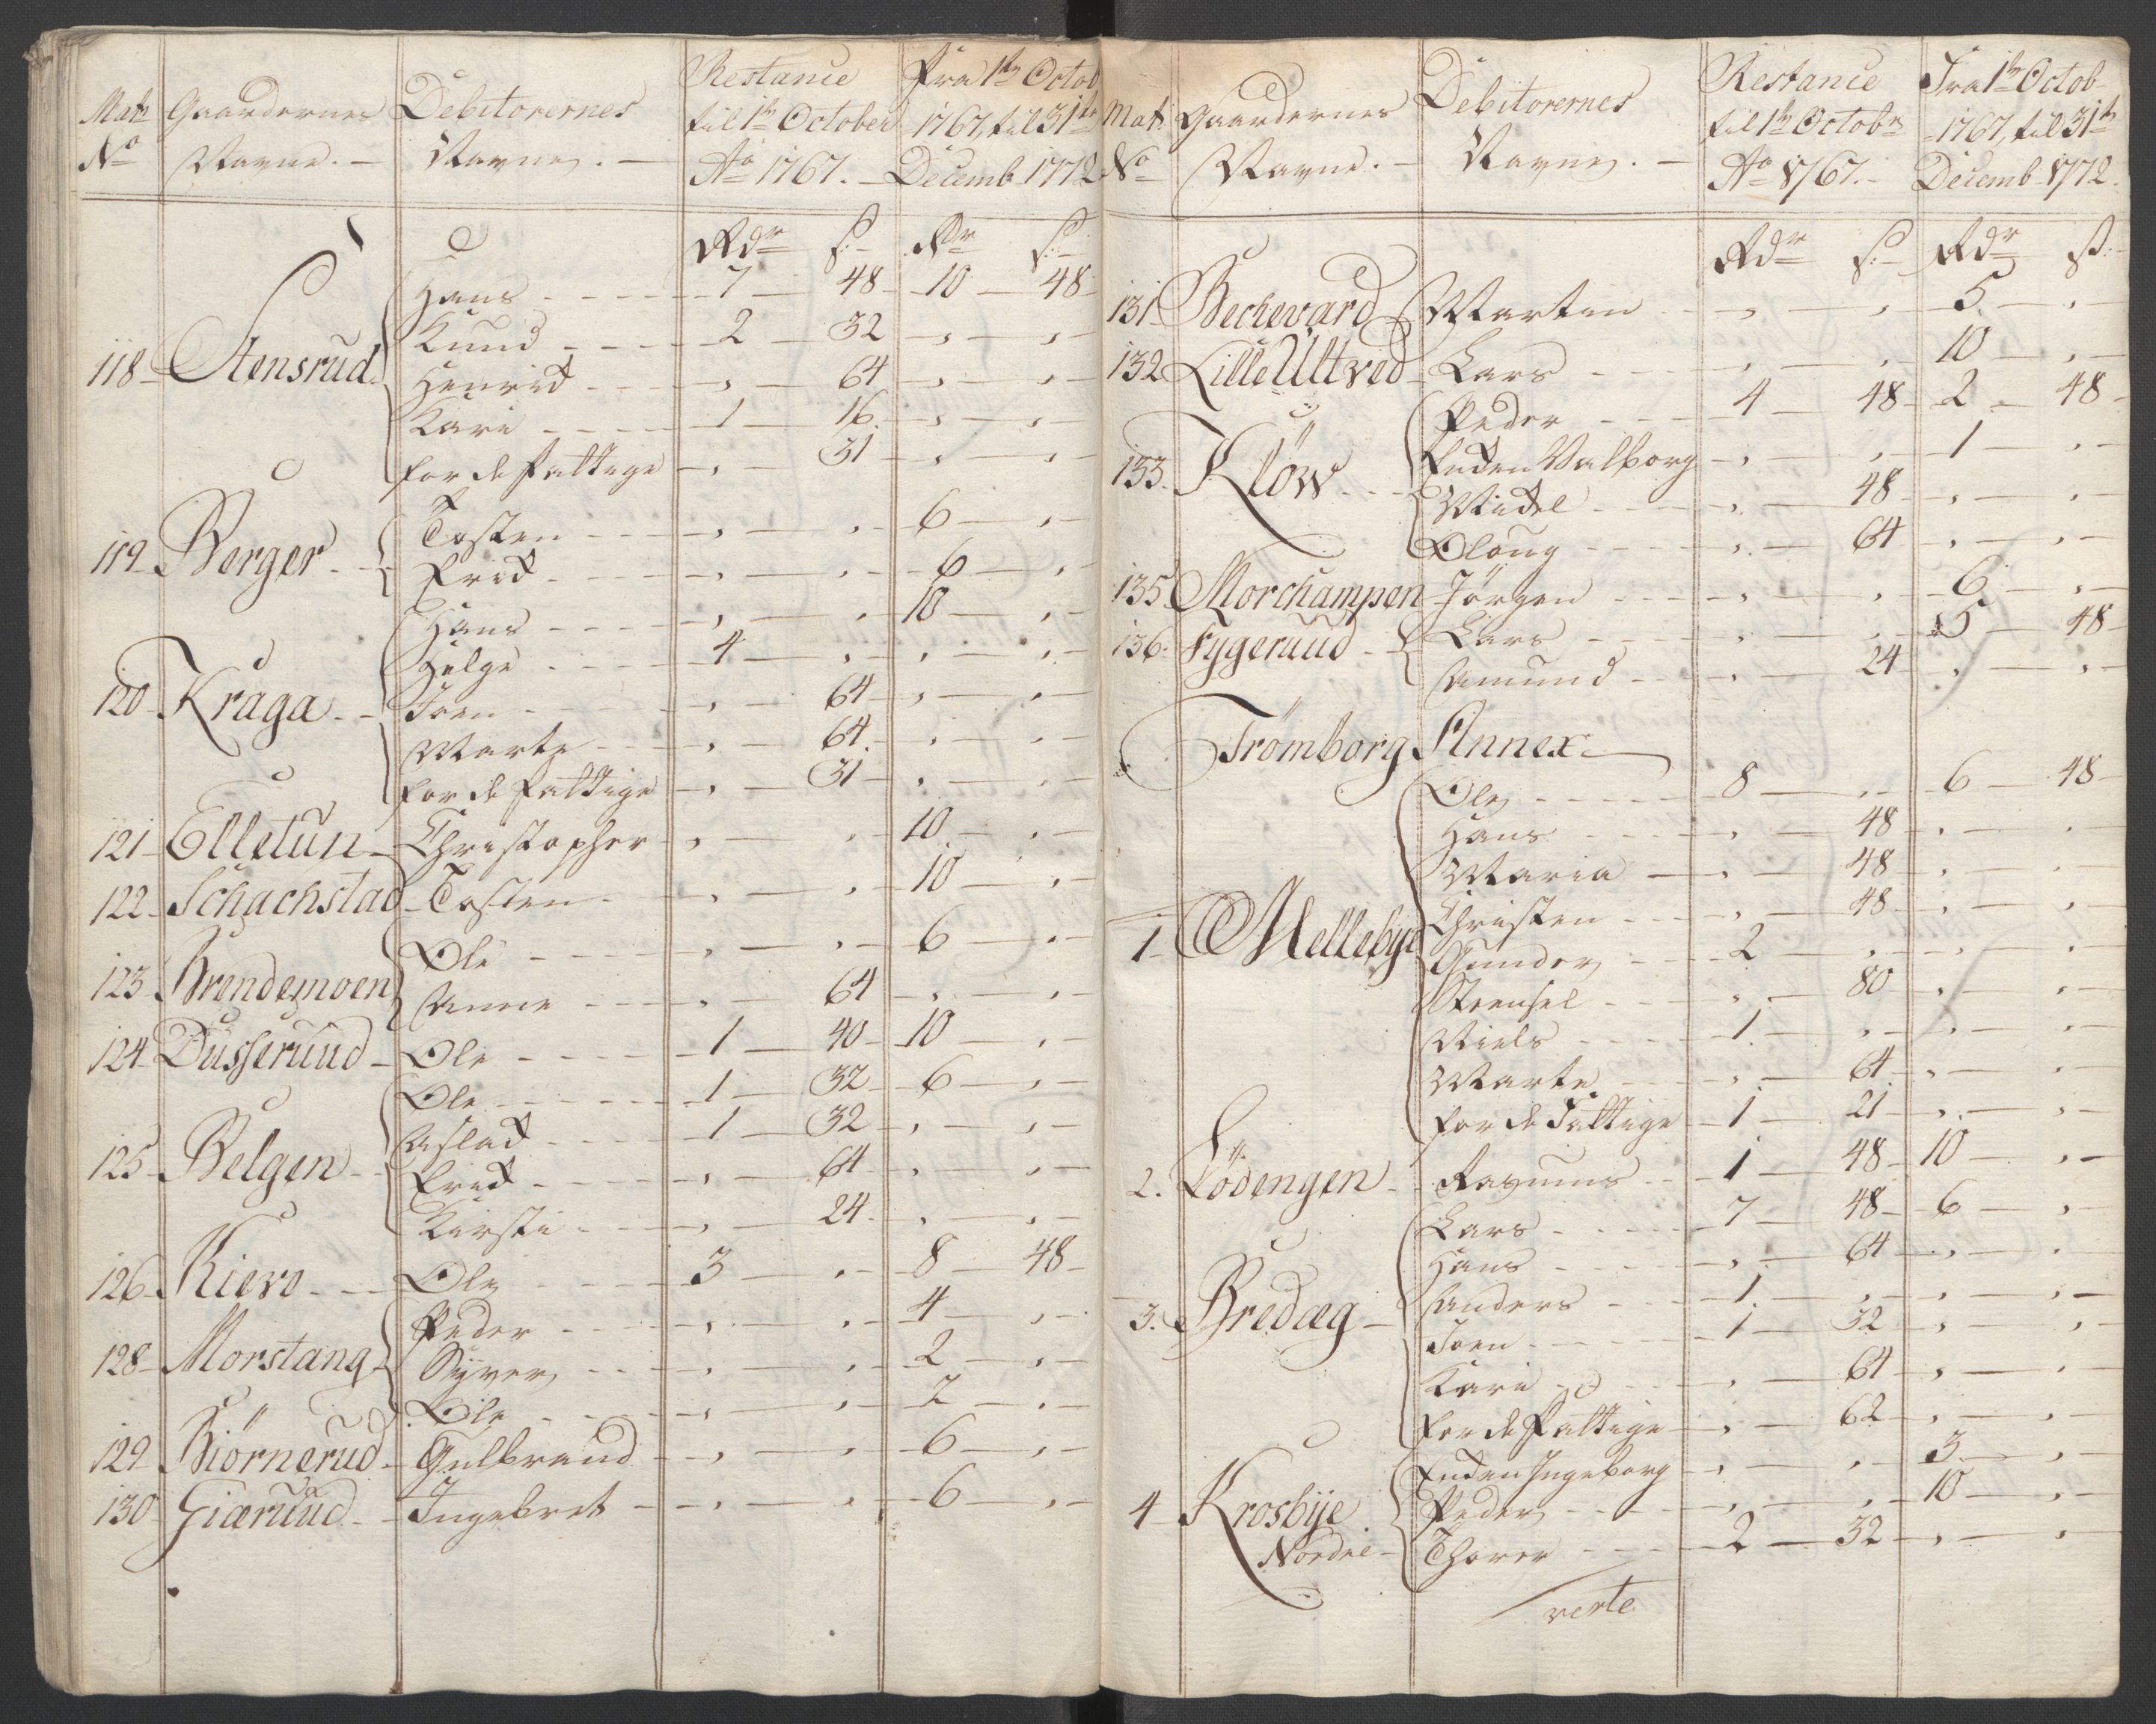 Mat: Gaardernes Debitorernes Restance Fra 1te Octob
No Navne. — Navne. — til 1te October 1767, til 31te
Ao 1767. — Decemb 1772
Rdr s. Rdr s.
Hans - - - - 7 — 48 - 10 — 48 -
Knud - - - - 2 — 32 - , — , -
118 - Stensrud. Henrich - - - , — 64 - , — , -
Kari - - - - 1 — 16. - , — , -
for de Fattige - , — 31 - , — , -
Tosten - - - , — , - 6 — , -
119 - Berger - - Erich - - - - , — , - 6 — , -
Hans - - - - , — , 10 — , -
Helge - - - - 4 — , - , — , -
120 - Kraga - - Joen - - - - , — 64 - , — , -
Marte - - - , — 64. - , — , -
for de Fattige - , — 31 - , — , -
121 - Elletun - Christopher - , — , - 10 — , -
122 - Schachstad - Tosten - - , — , - 10 — , -
Ole - - - - , — , - 6 — , -
123 Brendemoen Anne - - - , — 64 - , — , -
124 - Dusserund - Ole - - - - 1 — 40 - 10 — , -
Ole - - - - 1 — 32 - 6 — , -
Aslach - - - 1 — 32 - , — , -
125 - Belgen - - Erich - - - , — 64 - , — , -
Kirsti - - - , — 24 - , — , -
126 - Kiero - - - Ole - - - 3 — , - 8 — 48 -
Peder - - - , — , - 4 — , -
128 - Morstang - Syver - - - , — , - 2 — , -
Ole - - - , — , - 2 — , -
129 - Biörnerud - Gulbrand - , — , - 6 — , -
130 - Giærund - - Ingebret - - , — , - 6 — , -
Mat: Gaardernes Debitorernes Restance Fra 1te Octob-
No Navne. — Navne. — til 1te Octobr -1767, til 31te
Ao 1767. - Decemb - 1772.
Rdr s. Rdr s.
131 - Bechevard - Martin - , — , - 5 — , -
132 Lille Ultved - Lars - - - , — , - 10 — , -
Peder - - 4 — 48 - 2 — 48 -
133. Klöw - - - Enken Valborg - , — , - 1 — , -
Michel - - - , — 48 - , — , -
Oloug - - - - , — 64 - , — , -
135 Morchampen - Jörgen - - - , — , - 6 — , -
136. Fygeruud - Lars - - - , — , - 5 — 48 -
Amund - - , — 24 - , — , -
Trömborg Annex -
Ole - - - - 8 — , - 6 — 48 -
Hans - - - , — 48 - , — , -
Maria - , — 48 - , — , -
Christen - - - , — 48 - , — , -
1 - Mellebye Gunder - - - 2 — , - , — , -
Stensel - - - , — 80 - , — , -
Niels - - - 1 — , - , — , -
Marte - - , — 64 - , — , -
for de Fattige - 1 — 21 - , — , -
2. Lödengen - - Rasmus - - 1 — 48 - 10 — , -
Lars - - - 7 — 48 - 6 — , -
Hans - - - , — 64 - , — , -
3. Bredæg - Anders - - 1 — , - , — , -
Joen - - - 1 — 32 - , — , -
Kari - - - , — 64 - , — , -
for de Fattige - , — 62 - , — , -
Enken Ingeborg - , — , - 3 — , -
4 - Krosbye Peder - - - , — , - 10 — , -
Nordre - Thorer - - - 2 — 32 - , — ,
verte